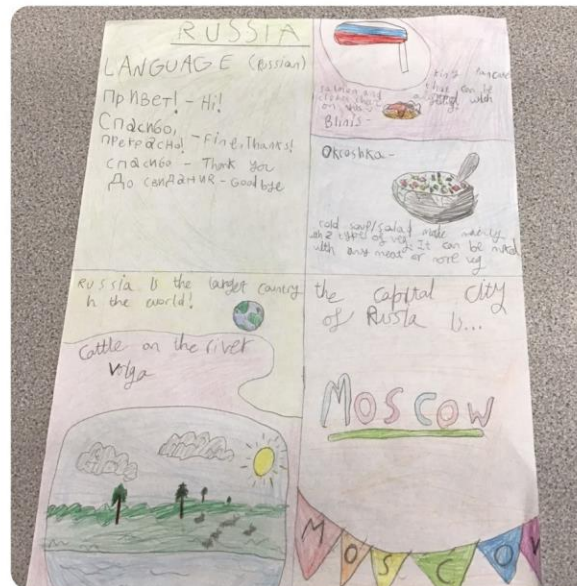 RUSSIA
LANGUAGE (Russian)
Привет! - Hi!
Спасибо,
прекрасно! - Fine, Thanks!
спасибо - Thank you
До свидания - Goodbye
tiny pancakes
that can be
with
salmon and
on
Blinis-
Okroshka-
cold soup/salad made mainly
types of veg. It can be mixed
with any meat or more veg
Russia is the largest country
in the world!
Cattle on the river
Volga
the capital city
of Russia is...
MOSCOW
MOSCOW